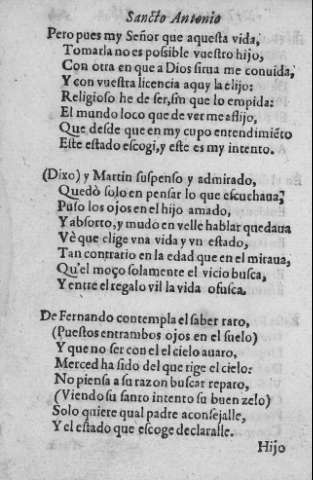 Sancto Antonio
Pero pues my Señor que aquesta vida,
Tomarla no es possible vuestro hijo,
Con otra en que a Dios sirua me conuida,
Y con vuestra licencia aquy la elijo:
Religioso he de ser, sin que lo empida:
El mundo loco que de ver me aflijo,
Que desde que en my cupo entendimiẽto
Este estado escogi, y este es my intento.
(Dixo) y Martin suspenso y admirado,
Quedò solo en pensar lo que escuchaua,
Puso los ojos en el hijo amado,
Y absorto, y mudo en velle hablar quedaua
Vè que elige vna vida y vn estado,
Tan contrario en la edad que en el miraua,
Qu'el moço solamente el vicio busca,
Y entre el regalo vil la vida ofusca.
De Fernando contempla el saber raro,
(Puestos entrambos ojos en el suelo)
Y que no ser con el el cielo auaro,
Merced ha sido del que rige el cielo:
No piensa a su razon buscar reparo,
(Viendo su santo intento su buen zelo)
Solo quiere qual padre aconsejalle,
Y el estado que escoge declaralle.
Hijo